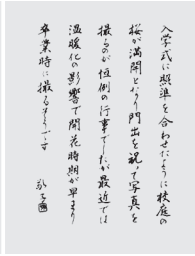 入学式に照準を合わせたように校庭の
桜が満開となり門出を祝って写真を
撮るのが恒例の行事でしたが最近では
温暖化の影響で開花時期が早まり
卒業時に撮るそうです